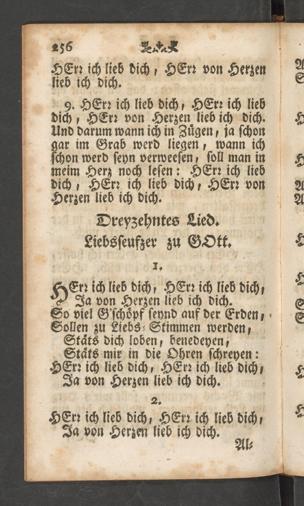 256
HErr ich lieb dich, HErr von Herzen
lieb ich dich.
9. HErr ich lieb dich, HErr ich lieb
dich, HErr von Herzen lieb ich dich.
Und darum wann ich in Zügen, ja schon
gar im Grab werd liegen, wann ich
schon werd seyn verweesen, soll man in
meim Herz noch lesen: HErr ich lieb
dich, HErr ich lieb dich, HErr von
Herzen lieb ich dich.
Dreyzehntes Lied.
Liebsseufzer zu GOtt.
1.
HErr ich lieb dich, HErr ich lieb dich,
Ja von Herzen lieb ich dich.
So viel G'schöpf seynd auf der Erden,
Sollen zu Liebs-Stimmen werden,
Stäts dich loben, benedeyen,
Stäts mir in die Ohren schreyen:
HErr ich lieb dich, HErr ich lieb dich,
Ja von Herzen lieb ich dich.
2.
HErr ich lieb dich, HErr ich lieb dich,
Ja von Herzen lieb ich dich.
Al-